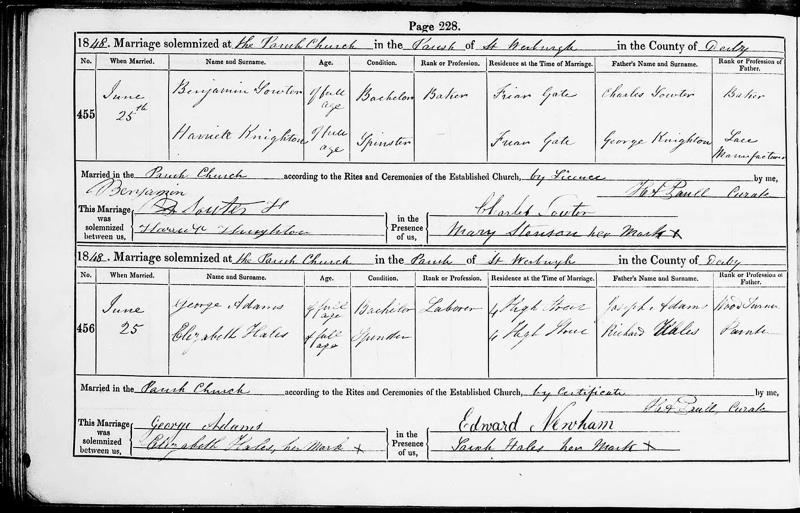 Page 228.
1848. Marriage solemnized at the Parish Church in the Parish of St Werburgh in the County of Derby
No. When Married. Name and Surname. Age. Condition. Rank or Profession. Residence at the Time of Marriage. Father's Name and Surname. Rank or Profession of Father.
455 June 25th Benjamin Sowter of full age Bachelor Baker Friar Gate Charles Sowter Baker
Harriett Knighton of full age Spinster Friar Gate George Knighton Lace Manufacturer
Married in the Parish Church according to the Rites and Ceremonies of the Established Church, by Licence by me,
Curate
This Marriage was solemnized between us, Benjamin Sowter in the Presence of us, Charles Sowter
Mary Stenson her Mark x
1848. Marriage solemnized at the Parish Church in the Parish of St Werburgh in the County of Derby
No. When Married. Name and Surname. Age. Condition. Rank or Profession. Residence at the Time of Marriage. Father's Name and Surname. Rank or Profession of Father.
456 June 25 George Adams of full age Bachelor Laborer 4 High Street Joseph Adams Wood Turner
Elizabeth Hales of full age Spinster 4 High Street Richard Hales
Married in the Parish Church according to the Rites and Ceremonies of the Established Church, by Certificate by me,
Curate
This Marriage was solemnized between us, George Adams in the Presence of us, Edward Newham
Elizabeth Hales, her Mark x Sarah Hales her Mark x